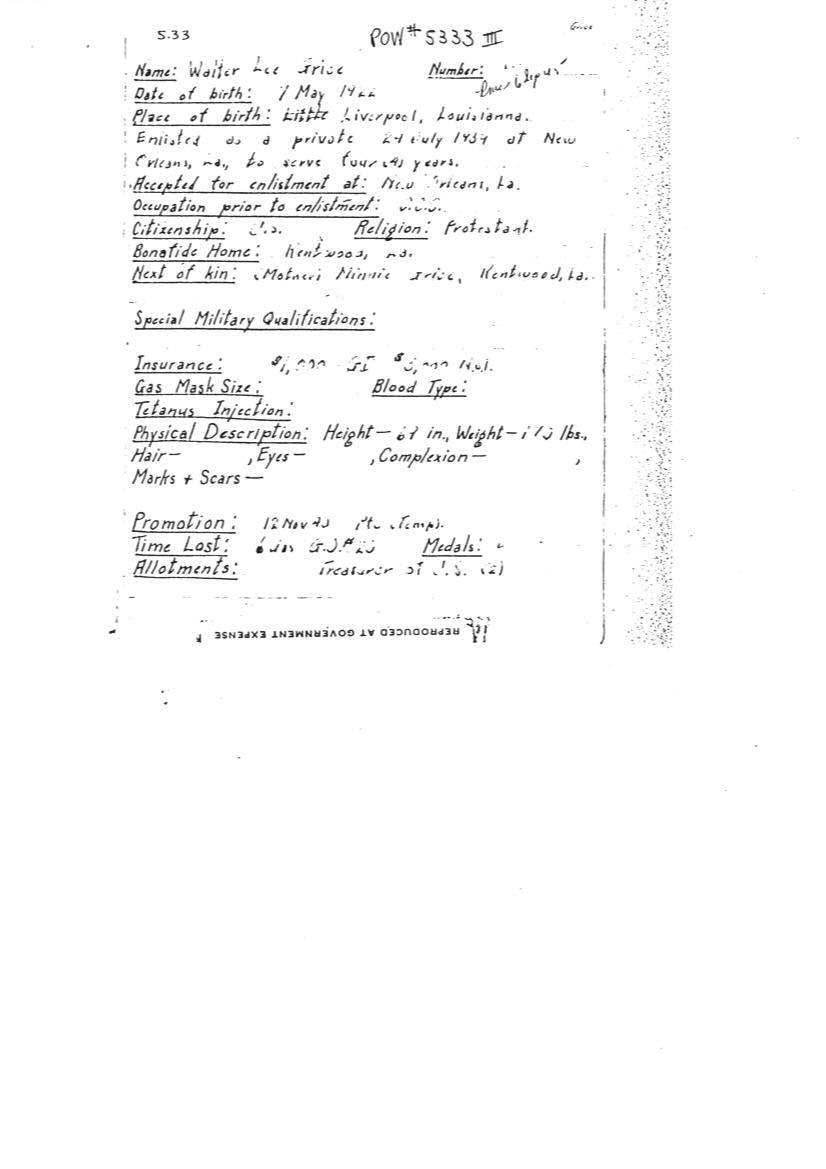 5.33 POW# 5333 III Grice
Name: Walter Lee Grice Number:
Date of birth: 7 May 1922
Place of birth: Little Liverpool, Louisianna.
Enlisted as a private July 1939 at New
Orleans, La., to serve four (4) years.
Accepted for enlistment at: New Orleans, La.
Occupation prior to enlistment:
Citizenship: U.S. Religion: Protestant.
Bonafide Home: Kentwood, La.
Next of kin: (Mother) Minnie Grice, Kentwood, La.
Special Military Qualifications:
Insurance: $1,000 GI
Gas Mask Size: Blood Type:
Tetanus Injection:
Physical Description: Height— in., Weight— lbs.,
Hair— , Eyes— , Complexion— ,
Marks + Scars—
Promotion: 12 Nov (Temp).
Time Lost: Medals:
Allotments: Treasurer of U.S. (2)
REPRODUCED AT GOVERNMENT EXPENSE